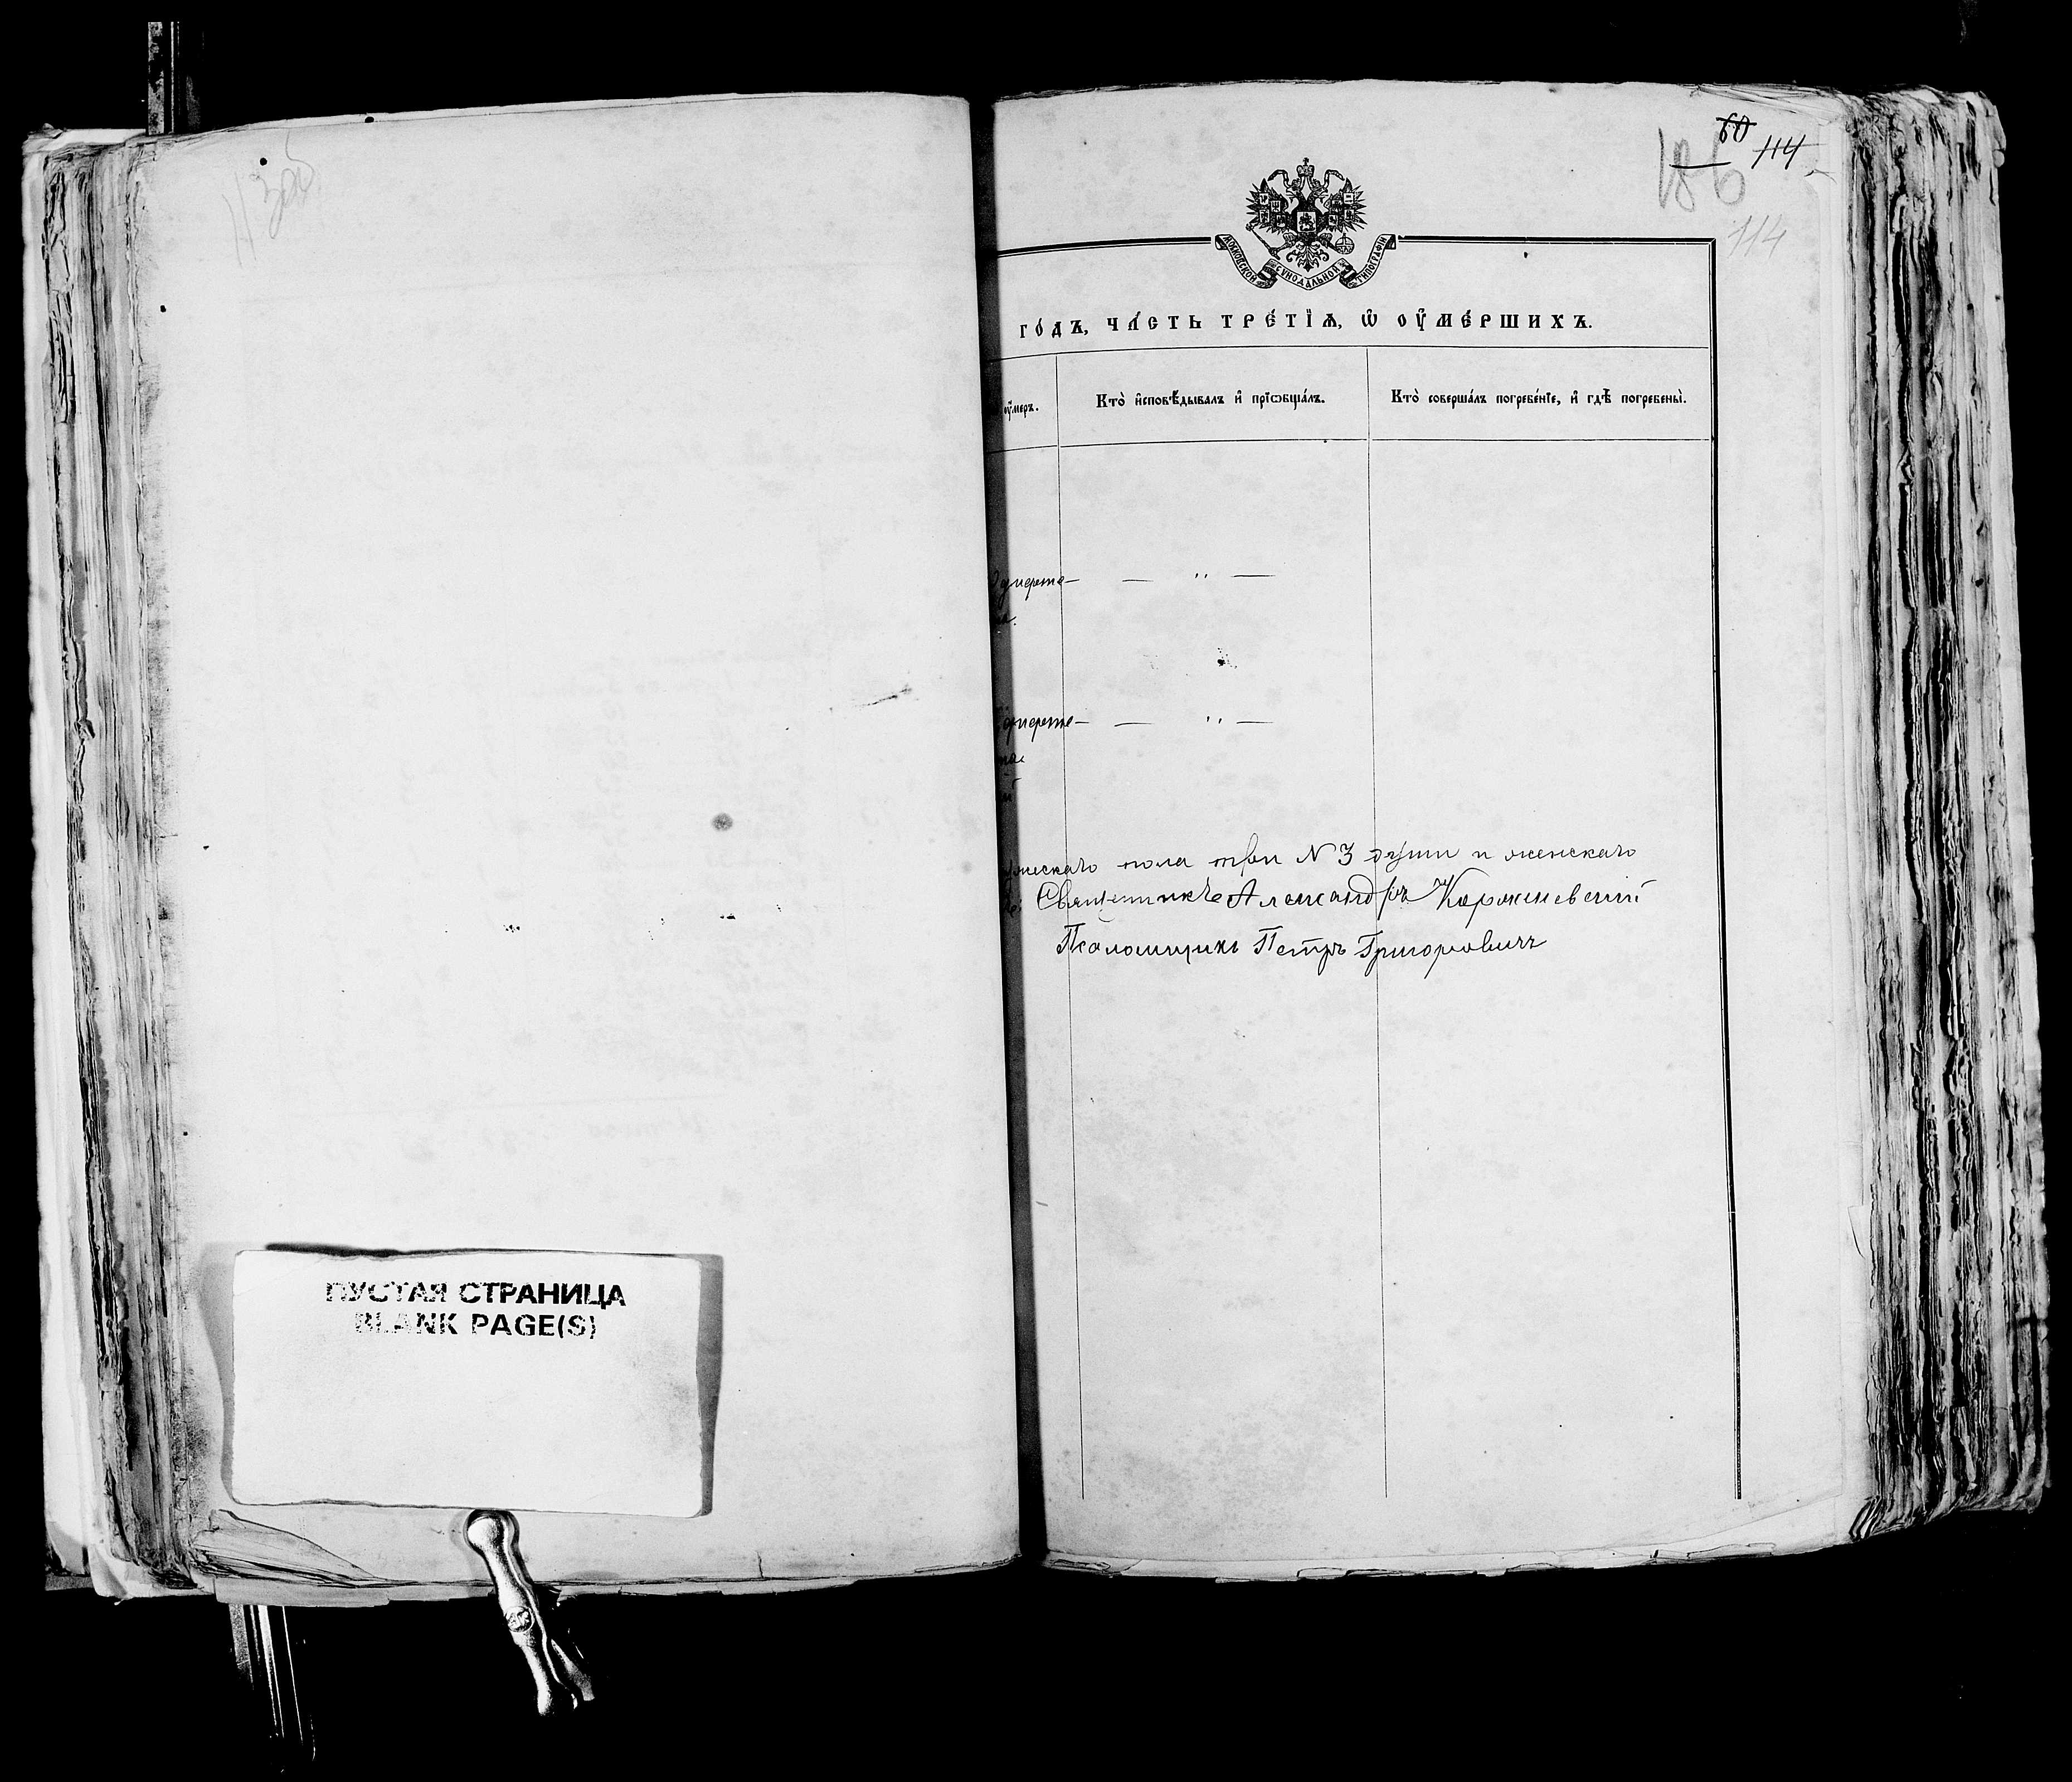 113об
60
114
186
114
МОСКОВСКОЙ СѴНОДАЛЬНОЙ ТИПОГРАФІИ
го́дъ, ча́сть тре́тїѧ, ѡ҆ оу҆ме́ршихъ.
оу҆меръ.
Кто̀ и҆сповѣ́дывалъ и҆ прїѡбща́лъ.
Кто̀ соверша́лъ погребе́нїе, и҆ гдѣ̀ погребены̀.
— " —
— " —
пола три № 3 души и женскаго
Священникъ Александръ Корженевскій
Псаломщикъ Петръ Григоровичъ
ПУСТАЯ СТРАНИЦА
BLANK PAGE(S)